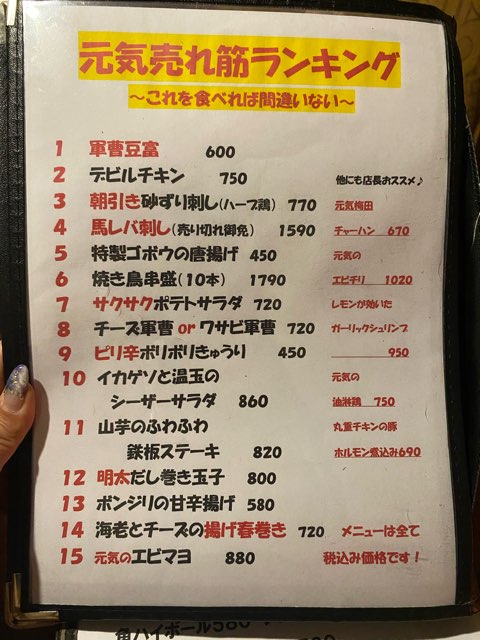 元気売れ筋ランキング
～これを食べれば間違いない～
1 軍曹豆富 600
2 デビルチキン 750
3 朝引き砂ずり刺し(ハーブ鶏) 770
4 馬レバ刺し(売り切れ御免) 1590
5 特製ゴボウの唐揚げ 450
6 焼き鳥串盛(10本) 1790
7 サクサクポテトサラダ 720
8 チーズ軍曹 or ワサビ軍曹 720
9 ピリ辛ポリポリきゅうり 450
10 イカゲソと温玉の
シーザーサラダ 860
11 山芋のふわふわ
鉄板ステーキ 820
12 明太だし巻き玉子 800
13 ボンジリの甘辛揚げ 580
14 海老とチーズの揚げ春巻き 720
15 元気のエビマヨ 880
他にも店長おススメ♪
元気梅田
チャーハン 670
元気の
エビチリ 1020
レモンが効いた
ガーリックシュリンプ
950
元気の
油淋鶏 750
丸重チキンの豚
ホルモン煮込み690
メニューは全て
税込み価格です！
角ハイボール580